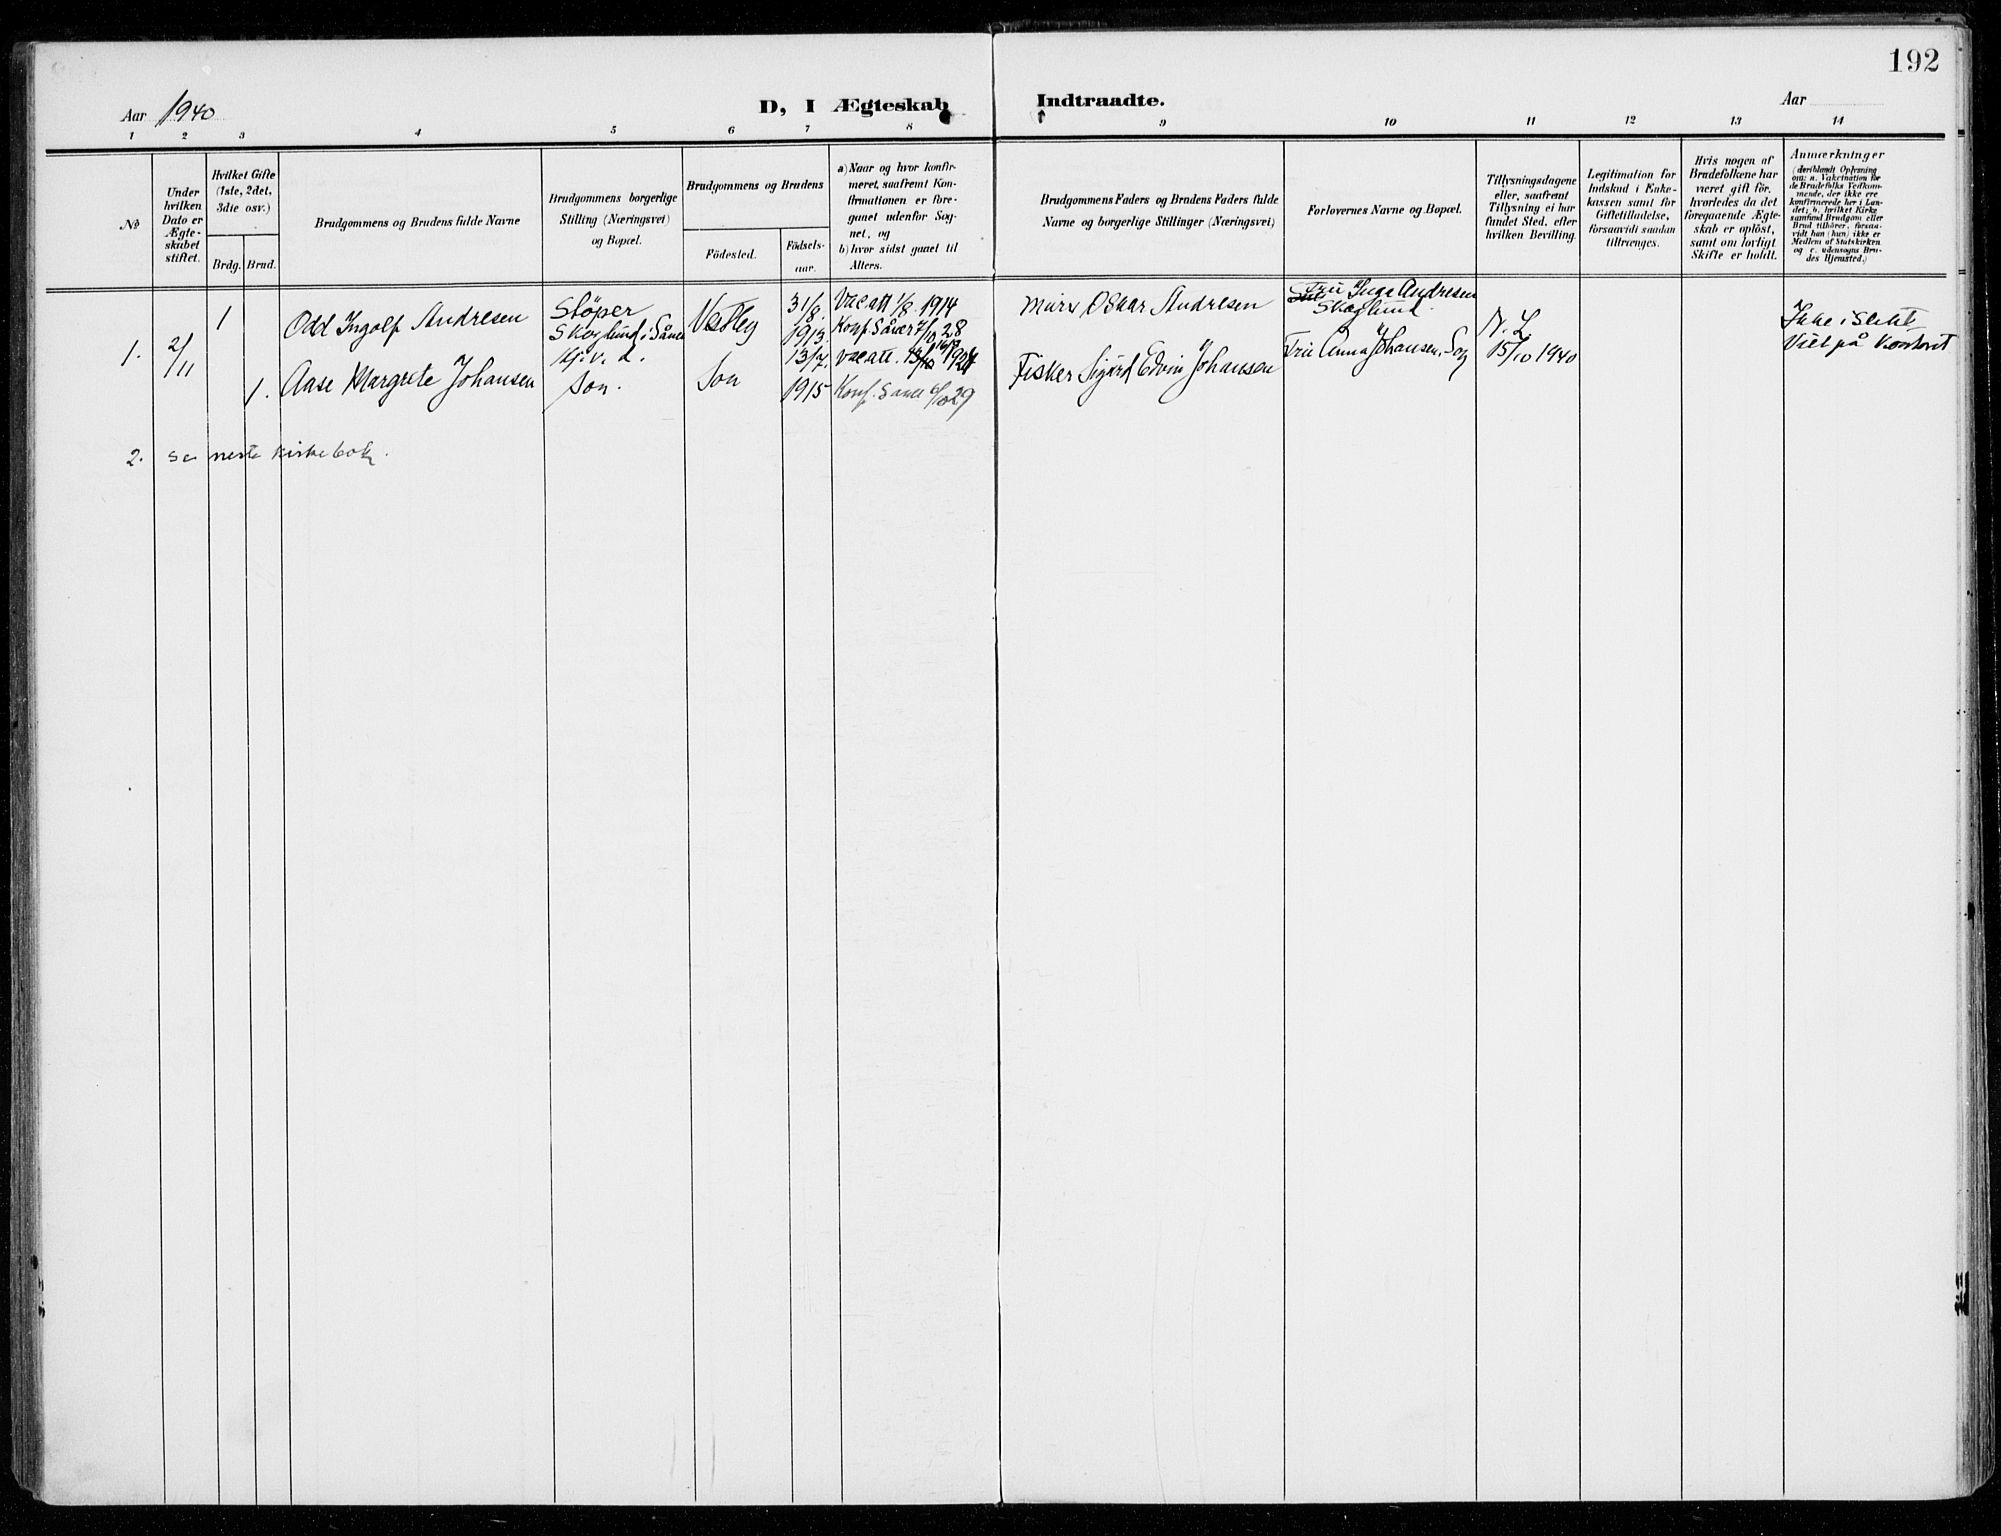 192
Aar 1940
D, I Ægteskab Indtraadte.
Aar
1 2 3 4 5 6 7 8 9 10 11 12 13 14
№
Under
hvilken
Dato er
Ægte-
skabet
stiftet.
Hvilket Gifte
(1ste, 2det,
3die osv.)
Brdg. Brud.
Brudgommens og Brudens fulde Navne
Brudgommens borgerlige
Stilling (Næringsvei)
og Bopæl.
Brudgommens og Brudens
Födested.
Födsels-
aar.
a) Naar og hvor konfir-
meret, saafremt Kon-
firmationen er fore-
gaaet udenfor Sog-
net, og
b) hvor sidst gaaet til
Alters.
Brudgommens Faders og Brudens Faders fulde
Navne og borgerlige Stillinger (Næringsvei)
Forlovernes Navne og Bopæl.
Tillysningsdagene
eller, saafremt
Tillysning ei har
fundet Sted, efter
hvilken Bevilling.
Legitimation for
Indskud i Enke-
kassen samt for
Giftetilladelse,
forsaavidt saadan
tiltrænges.
Hvis nogen af
Brudefolkene har
været gift för,
hvorledes da det
foregaaende Ægte-
skab er oplöst,
samt om lovligt
Skifte er holdt.
Anmærkninger
(deriblandt Oplysning
om: a. Vakcination for
de Brudefolks Vedkom-
mende, der ikke ere
konfirmerede her i Lan-
det; b. hvilket Kirke-
samfund Brudgom eller
Brud tilhörer, forsaa-
vidt han (hun) ikke er
Medlem af Statskirken
og c. udensogns Bru-
des Hjemsted.)
1. 2/11
1 Odd Ingolf Andresen
Støper
Skoglund i Såner
Vestby
31/8.
1913.
Vac att 1/8. 1914
Konf. Såner 7/10 28
Murer Oskar Andresen
Fru Inga Andresen
Skoglund.
N. L.
15/10 1940
Ikke i Slekt
Viet på Kontoret
1. Aase Margrete Johansen
Hj. v. d.
Son.
Son
13/7
1915
Vac att.
Konf. Såner 6/10 29
Fisker Sigurd Edvin Johansen
Fru Anna Johansen, Son
2. se neste kirkebok.